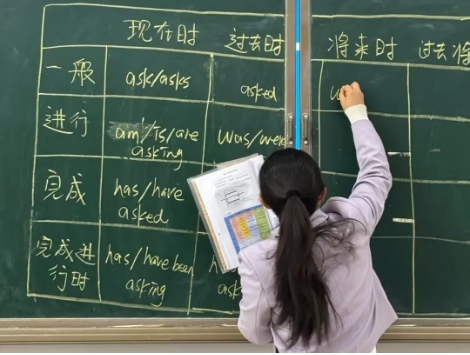 现在时 过去时 将来时 过去将
一般 ask/asks asked
进行 am/is/are was/were
asking
完成 has/have
asked
完成进 has/have been
行时 asking